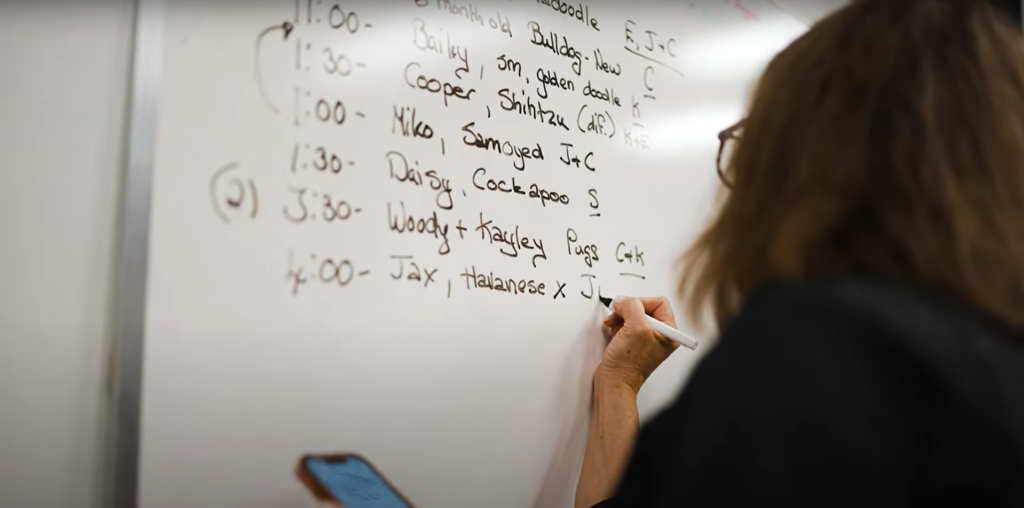 doodle E, J+C
month old Bulldog-New C
11:00- Bailey, sm, golden doodle K
1:30- Cooper, Shihtzu (dif.) K+E
1:00- Miko, Samoyed J+C
1:30- Daisy, Cockapoo S
(2) 3:30- Woody + Kayley Pugs C+K
4:00- Jax, Havanese x J